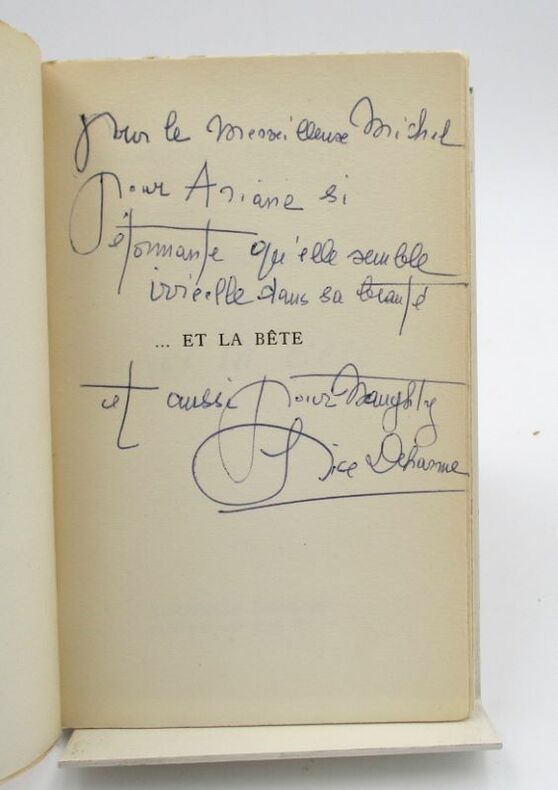 pour le merveilleux Michel
pour Ariane si
étonnante qu'elle semble
irréelle dans sa beauté
... ET LA BÊTE
et aussi pour Naughty
Lise Deharme